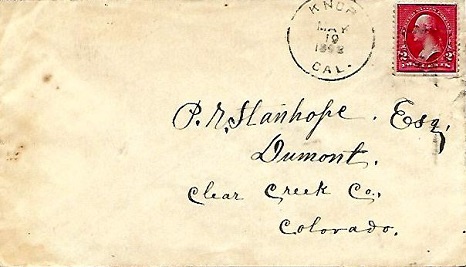 KNOB
MAY
19
1898
CAL.
2 2
P. R. Stanhope. Esq.
Dumont.
Clear Creek Co.
Colorado.